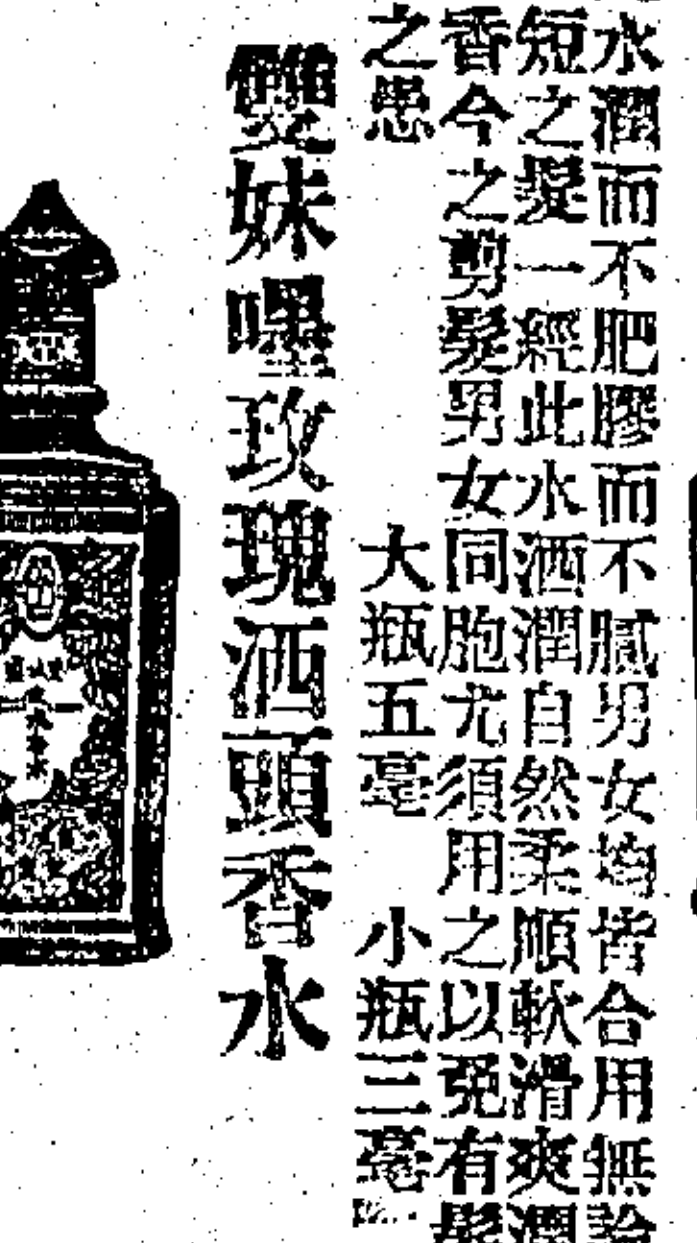 水潤而不肥膠而不膩男女均皆合用無論
短之髮一經此水洒潤自然柔順軟滑爽潤
香今之剪髮男女同胞尤須用之以免有髮
之患
大瓶五毫 小瓶三毫
雙妹嘜玫瑰洒頭香水